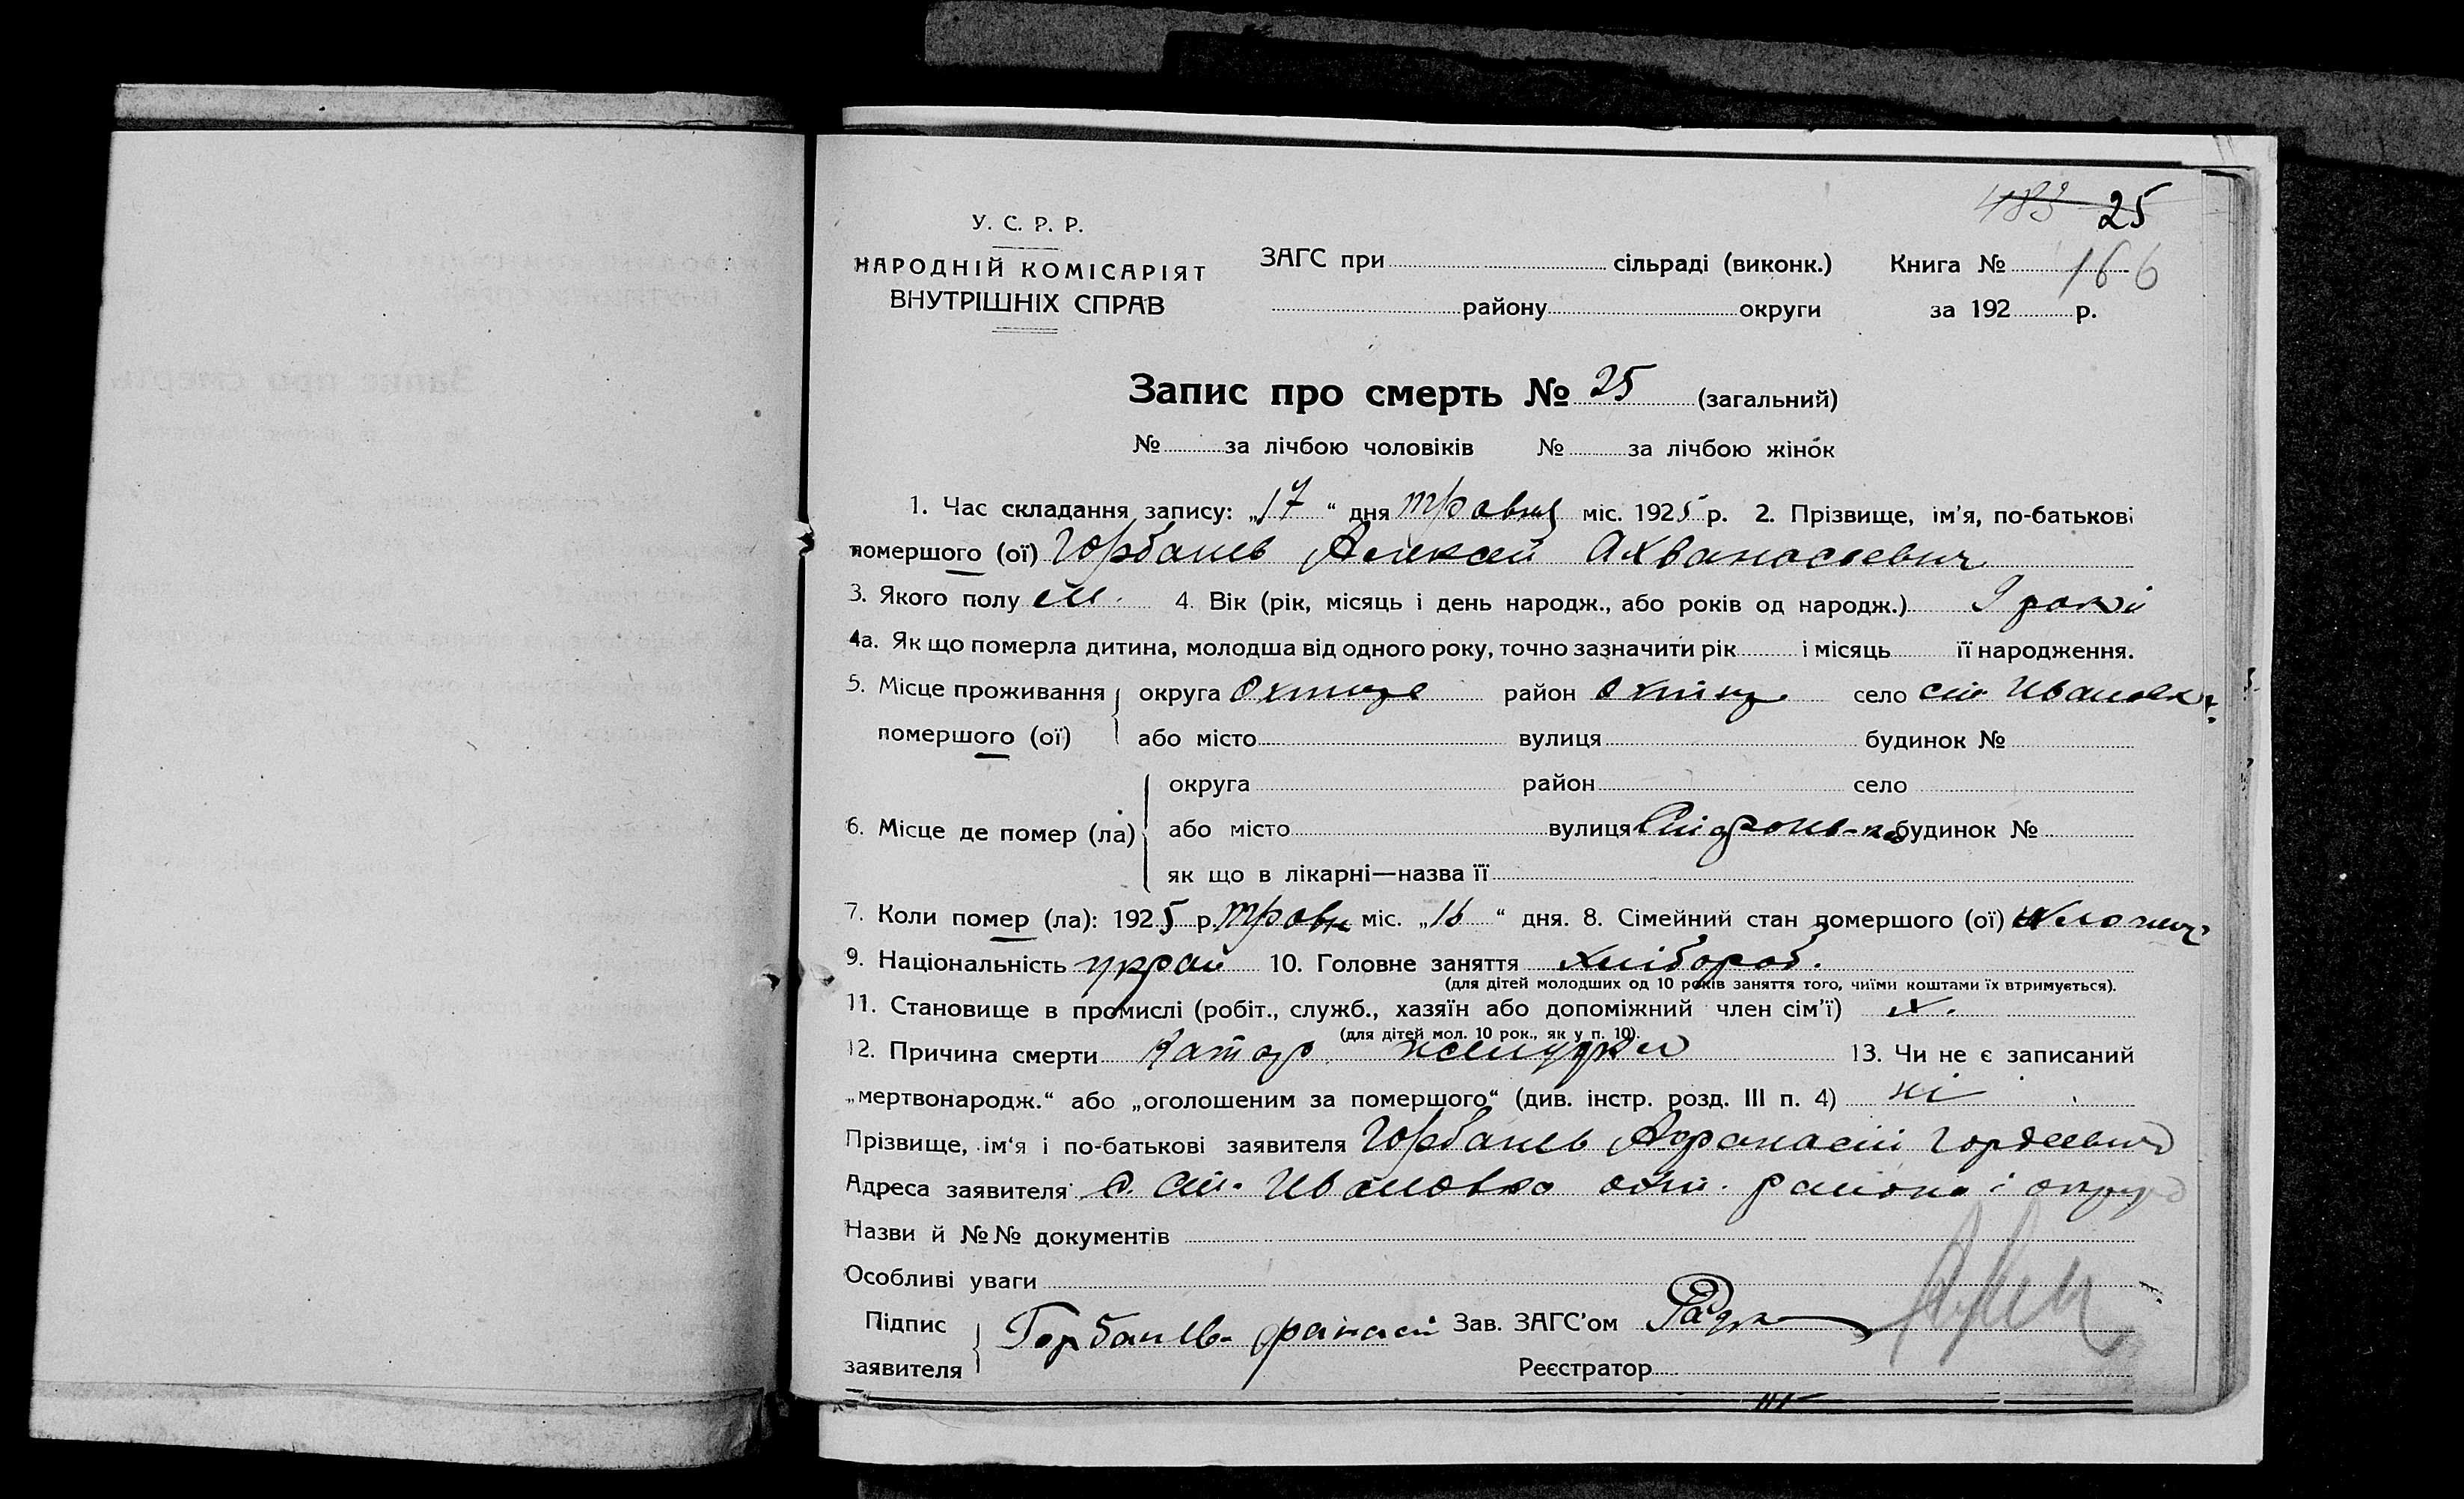 483 25
У. С. Р. Р.
НАРОДНІЙ КОМІСАРІЯТ
ВНУТРІШНІХ СПРАВ
ЗАГС при сільраді (виконк.) Книга № 166
району округи за 192 р.
Запис про смерть № 25 (загальний)
№ за лічбою чоловіків № за лічбою жінок
1. Час складання запису: „17“ дня травня міс. 1925 р. 2. Прізвище, ім'я, по-батькові
помершого (ої) Горбань Алексей Ахванасевич
3. Якого полу м. 4. Вік (рік, місяць і день народж., або років од народж.) 9 років
4а. Як що померла дитина, молодша від одного року, точно зазначити рік і місяць її народження.
5. Місце проживання округа район село Ивановка
помершого (ої) або місто вулиця будинок №
округа район село
6. Місце де помер (ла) або місто вулиця будинок №
як що в лікарні—назва її
7. Коли помер (ла): 1925 р. травн міс. „16“ дня. 8. Сімейний стан помершого (ої)
9. Національність украй 10. Головне заняття хлібороб.
(для дітей молодших од 10 років заняття того, чиїми коштами їх втримується).
11. Становище в промислі (робіт., служб., хазяїн або допоміжний член сім'ї) х.
(для дітей мол. 10 рок., як у п. 10).
12. Причина смерти Катар желудка 13. Чи не є записаний
„мертвонародж.“ або „оголошеним за помершого“ (див. інстр. розд. III п. 4) ні
Прізвище, ім'я і по-батькові заявителя Горбань Афанасій Гордеевич
Адреса заявителя с. Ивановка охт. района і округа
Назви й №№ документів
Особливі уваги
Підпис Горбань Зав. ЗАГС'ом
заявителя Реєстратор